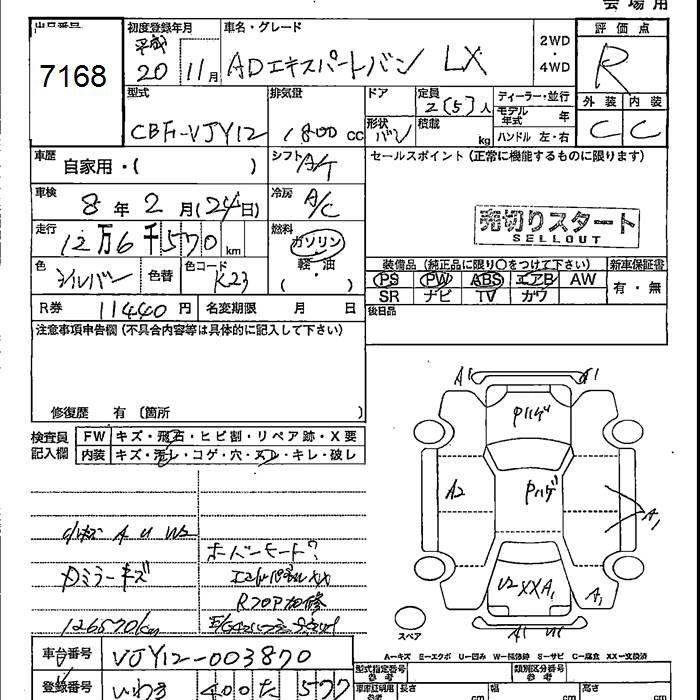 会場用
出品番号
7168
初度登録年月
平成
20 11月
車名・グレード
ADエキスパートバン LX
2WD
・
4WD
評価点
R
外装 内装
C C
型式
CBF-VJY12
排気量
1800 cc
ドア
形状
バン
定員
2(5)人
積載
kg
ディーラー・並行
モデル年式 年
ハンドル 左・右
車歴
自家用・( )
シフト
A/T
セールスポイント (正常に機能するものに限ります)
車検
8年2月(24日)
冷房
A/C
売切りスタート
SELLOUT
走行
12万6千570km
燃料
ガソリン
軽・油
( )
色
シルバー
色替
色コード
K23
装備品(純正品に限り○をつけて下さい)
PS PW ABS エアB AW
SR ナビ TV カワ
新車保証書
有・無
R券 11440円
名変期限 月 日
後日品
注意事項申告欄(不具合内容等は具体的に記入して下さい)
修復歴 有 (箇所 )
検査員記入欄
FW キズ・飛石・ヒビ割・リペア跡・X要
内装 キズ・汚レ・コゲ・穴・スレ・キレ・破レ
小キズ A U W2
ミラーキズ
126570km
コーションモード?
XX
Rフロア補修
A1 A1
Pハゲ
A2
Pハゲ
A1
U2 XX A1
A1
A1 U1
スペア
A-キズ E-エクボ U-凹み W-補修跡 S-サビ C-腐食 XX-交換済
車台番号 VJY12-003870
登録番号 いわき 400 た 577
型式指定番号
参考
類別区分番号
参考
車庫証明用
参考
長さ
cm
幅
cm
高さ
cm